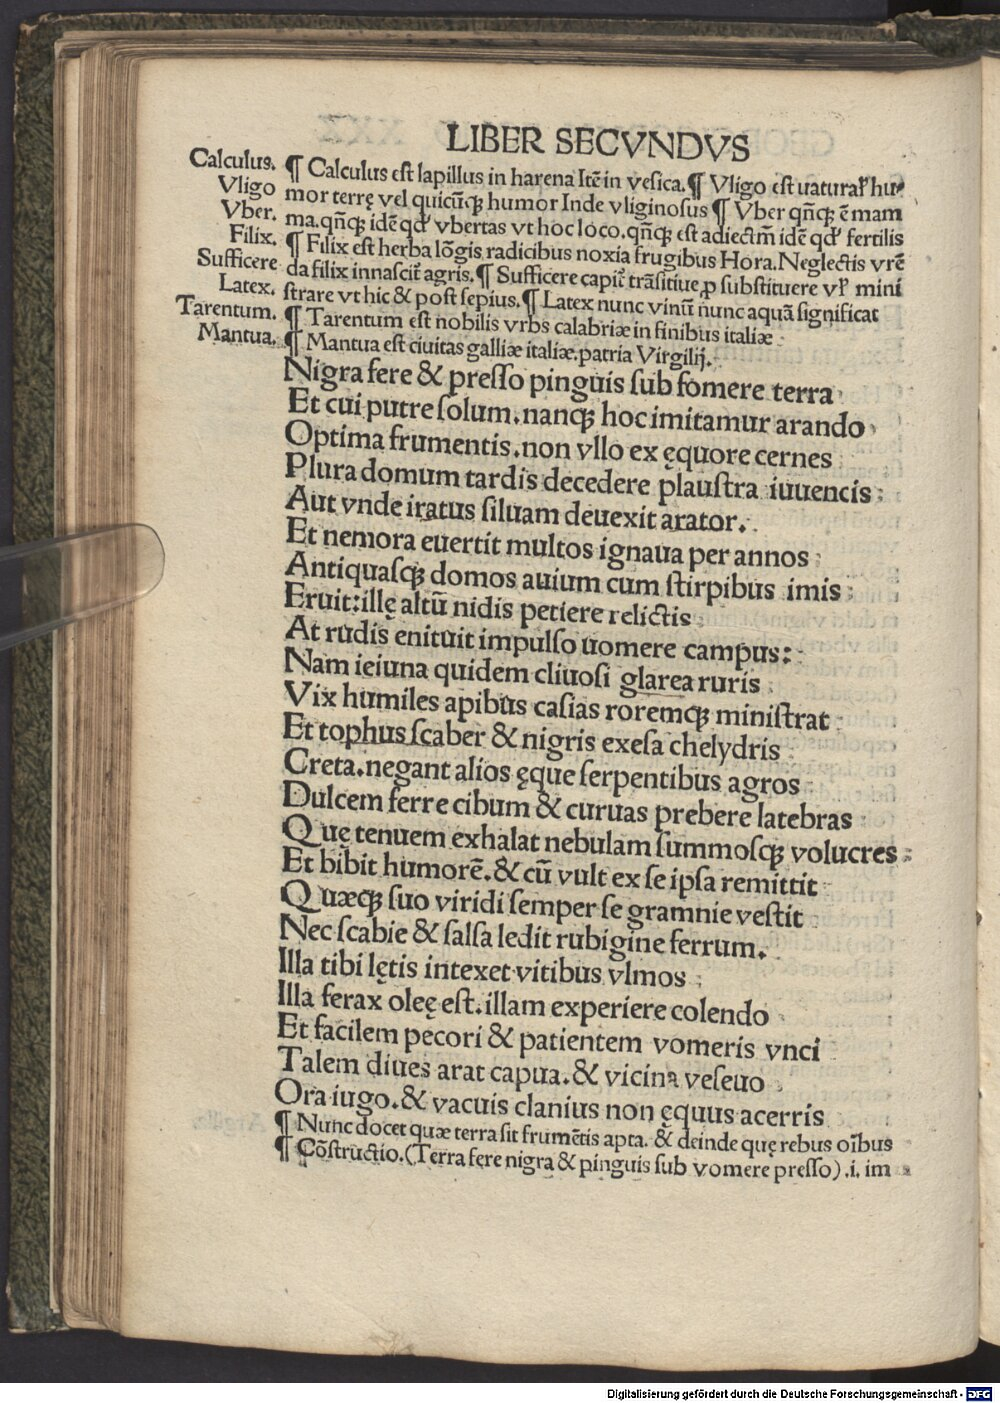 LIBER SECVNDVS
Calculus. ¶ Calculus est lapillus in harena Itē in vesica. ¶ Vligo est uatural' hu⸗
Vligo mor terrę vel quicūqꝫ humor Inde vliginosus ¶ Vber qñqꝫ ē mam
Vber. ma. qñqꝫ idē qď vbertas vt hoc loco. qñqꝫ est adiectm̄ idē qď fertilis
Filix. ¶ Filix est herba lōgis radicibus noxia frugibus Hora. Neglectis vrē
Sufficere da filix innascit̄ agris. ¶ Sufficere capit̄ trāsitiue ꝓ substituere vl' mini
Latex. strare vt hic & post sepius. ¶ Latex nunc vinū nunc aquā significat
Tarentum. ¶ Tarentum est nobilis vrbs calabriæ in finibus italiæ
Mantua. ¶ Mantua est ciuitas galliæ italiæ. patria Virgilij.
Nigra fere & presso pinguis sub fomere terra
Et cui putre solum. nanqꝫ hoc imitamur arando
Optima frumentis. non vllo ex ęquore cernes
Plura domum tardis decedere plaustra iuuencis:
Aut vnde iratus siluam deuexit arator.
Et nemora euertit multos ignaua per annos
Antiquasqꝫ domos auium cum stirpibus imis:
Eruit: illę altū nidis petiere relictis
At rudis enituit impulso uomere campus:
Nam ieiuna quidem cliuosi glarea ruris
Vix humiles apibus casias roremqꝫ ministrat
Et tophus scaber & nigris exesa chelydris
Creta. negant alios ęque serpentibus agros
Dulcem ferre cibum & curuas prebere latebras
Quę tenuem exhalat nebulam summosqꝫ volucres:
Et bibit humorē. & cū vult ex se ipsa remittit
Quæqꝫ suo viridi semper se gramnie vestit
Nec scabie & salsa ledit rubigine ferrum.
Illa tibi lętis intexet vitibus vlmos:
Illa ferax oleę est. illam experiere colendo
Et facilem pecori & patientem vomeris vnci
Talem diues arat capua. & vicina veseuo
Ora iugo. & vacuis clanius non ęquus acerris
¶ Nunc docet quæ terra sit frumētis apta. & deinde quę rebus oībus
¶ Cōstructio. (Terra fere nigra & pinguis sub vomere presso) .i. im
Digitalisierung gefördert durch die Deutsche Forschungsgemeinschaft - DFG